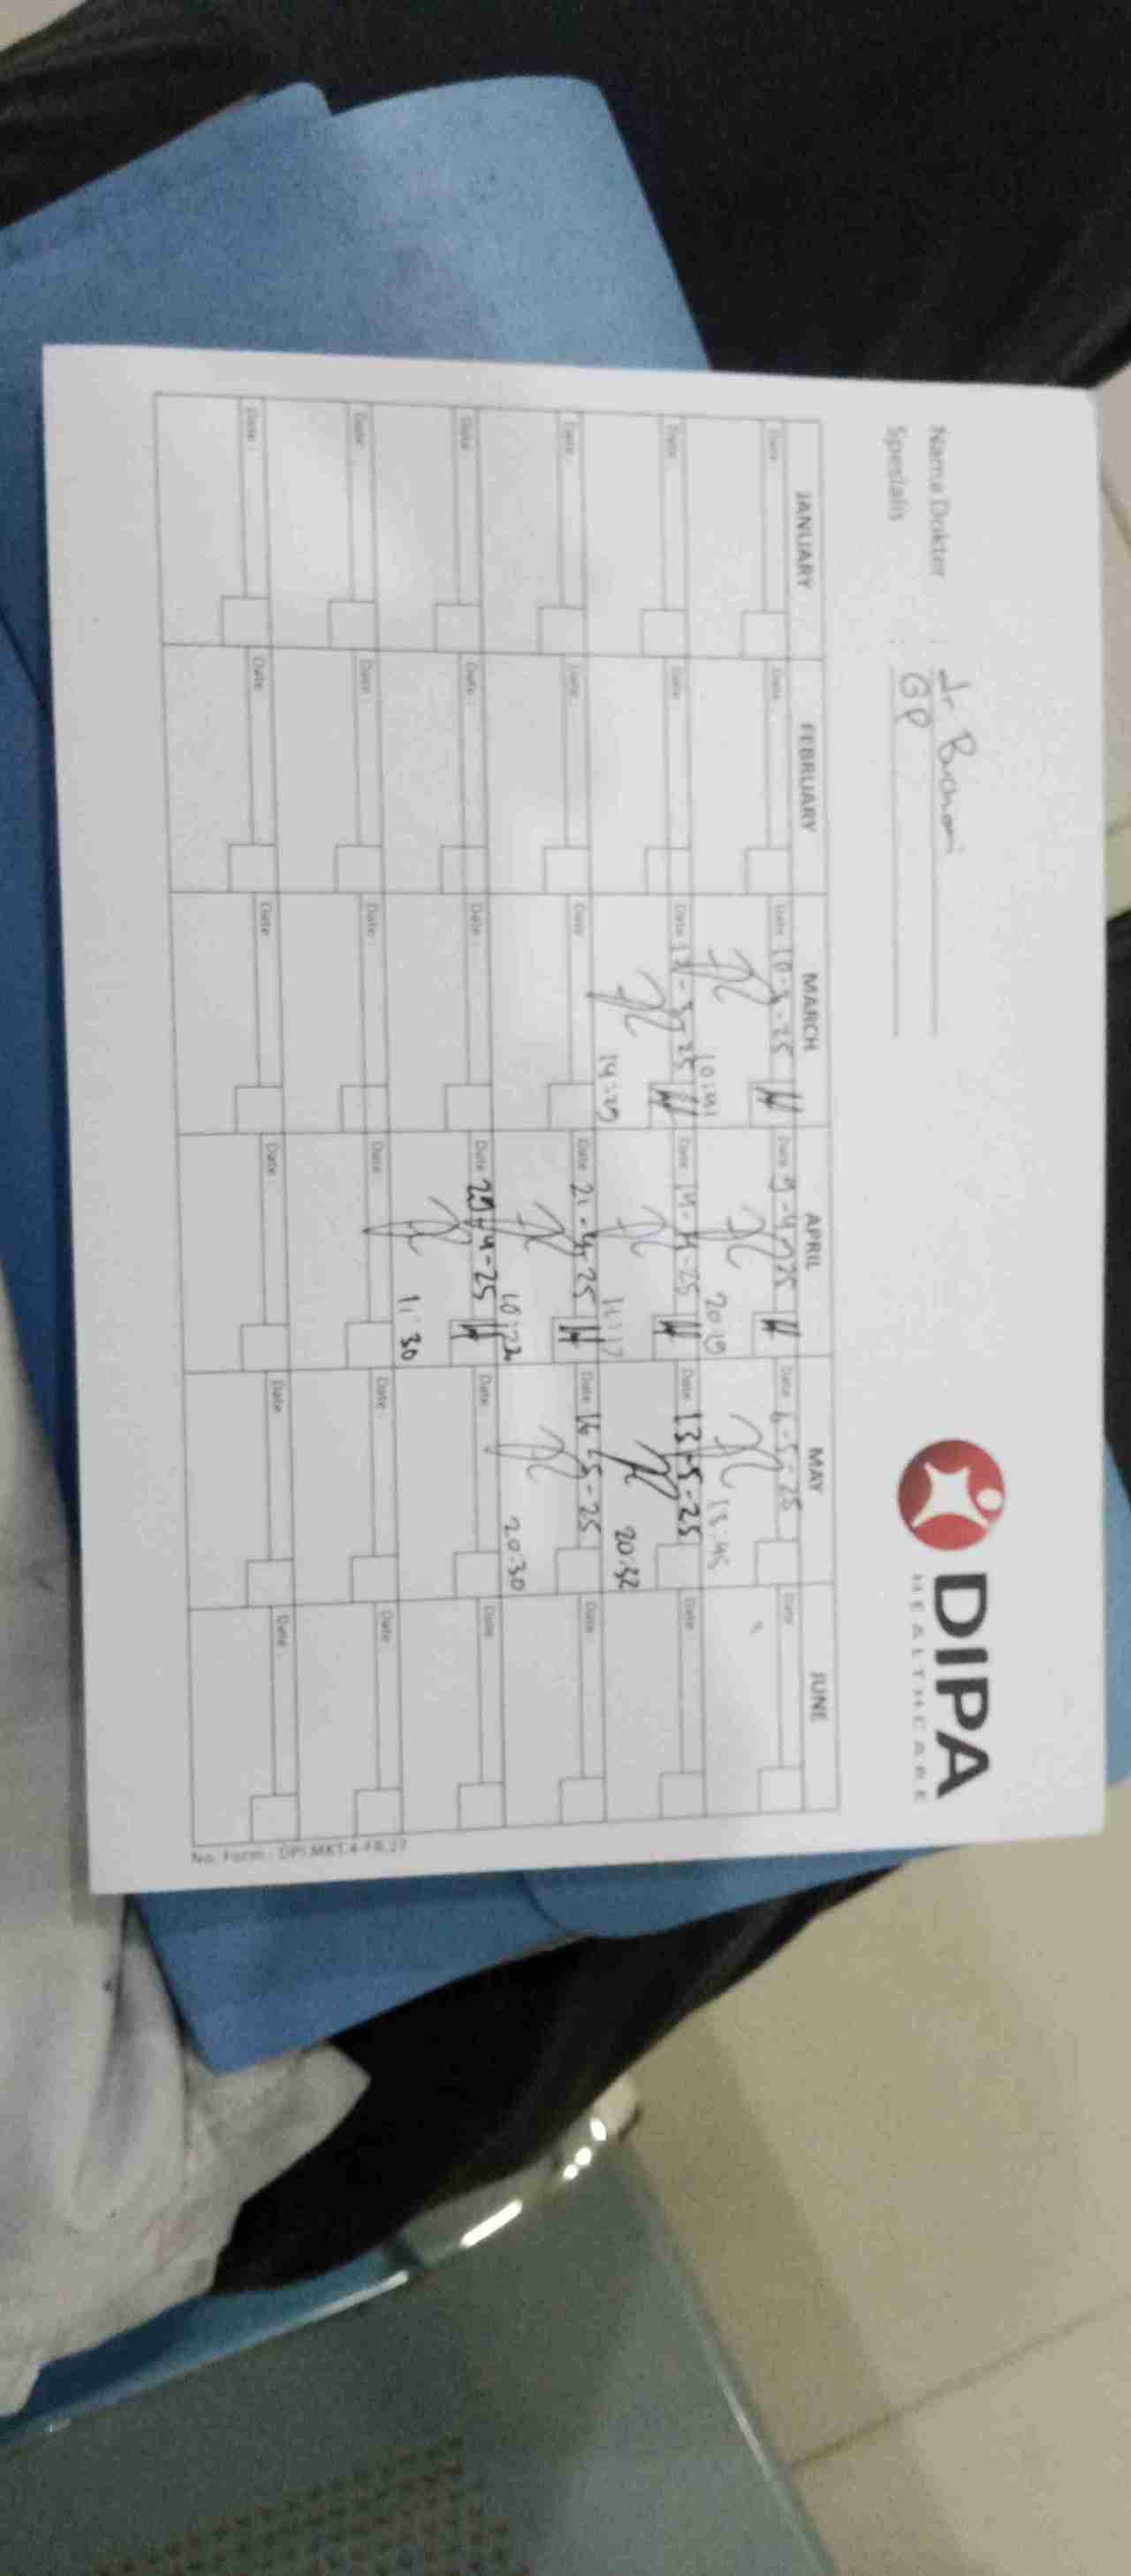 DIPA
HEALTHCARE
Nama Dokter : dr Buchori
Spesialis : GP
JANUARY FEBRUARY MARCH APRIL MAY JUNE
Date : Date : Date 10-3-25 Date 9-4-25 Date 6-5-25 Date
10:41 20:19 13:45
Date : Date : Date -3-25 Date 14-4-25 Date 13-5-25 Date
14:29 11:17 20:32
Date : Date : Date Date 21-4-25 Date 16-5-25 Date
10:22 20:30
Date Date : Date : Date 29-4-25 Date : Date
11:30
Date : Date : Date : Date : Date : Date
Date : Date : Date Date : Date : Date :
No. Form : DPI.MKT.4-FR.27